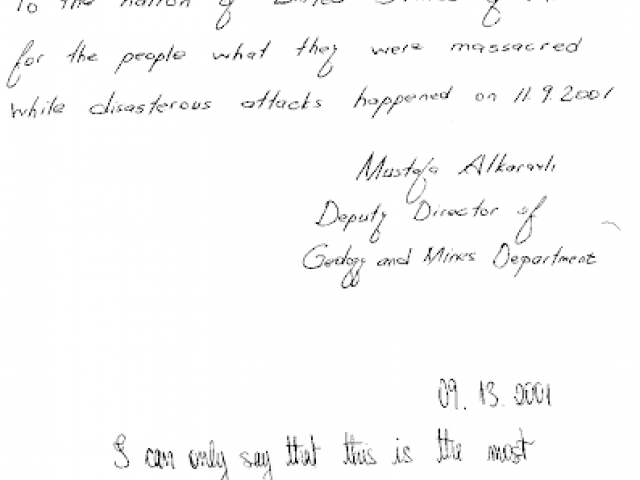 To the nation of United States of
for the people what they were massacred
while disasterous attacks happened on 11.9.2001
Mustafa Alkaravlı
Deputy Director of
Geology and Mines Department
09.13.2001
I can only say that this is the most